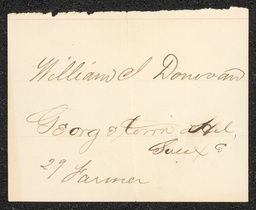 William S Donovan
Georgetown Del,
Sussex
29 Farmer